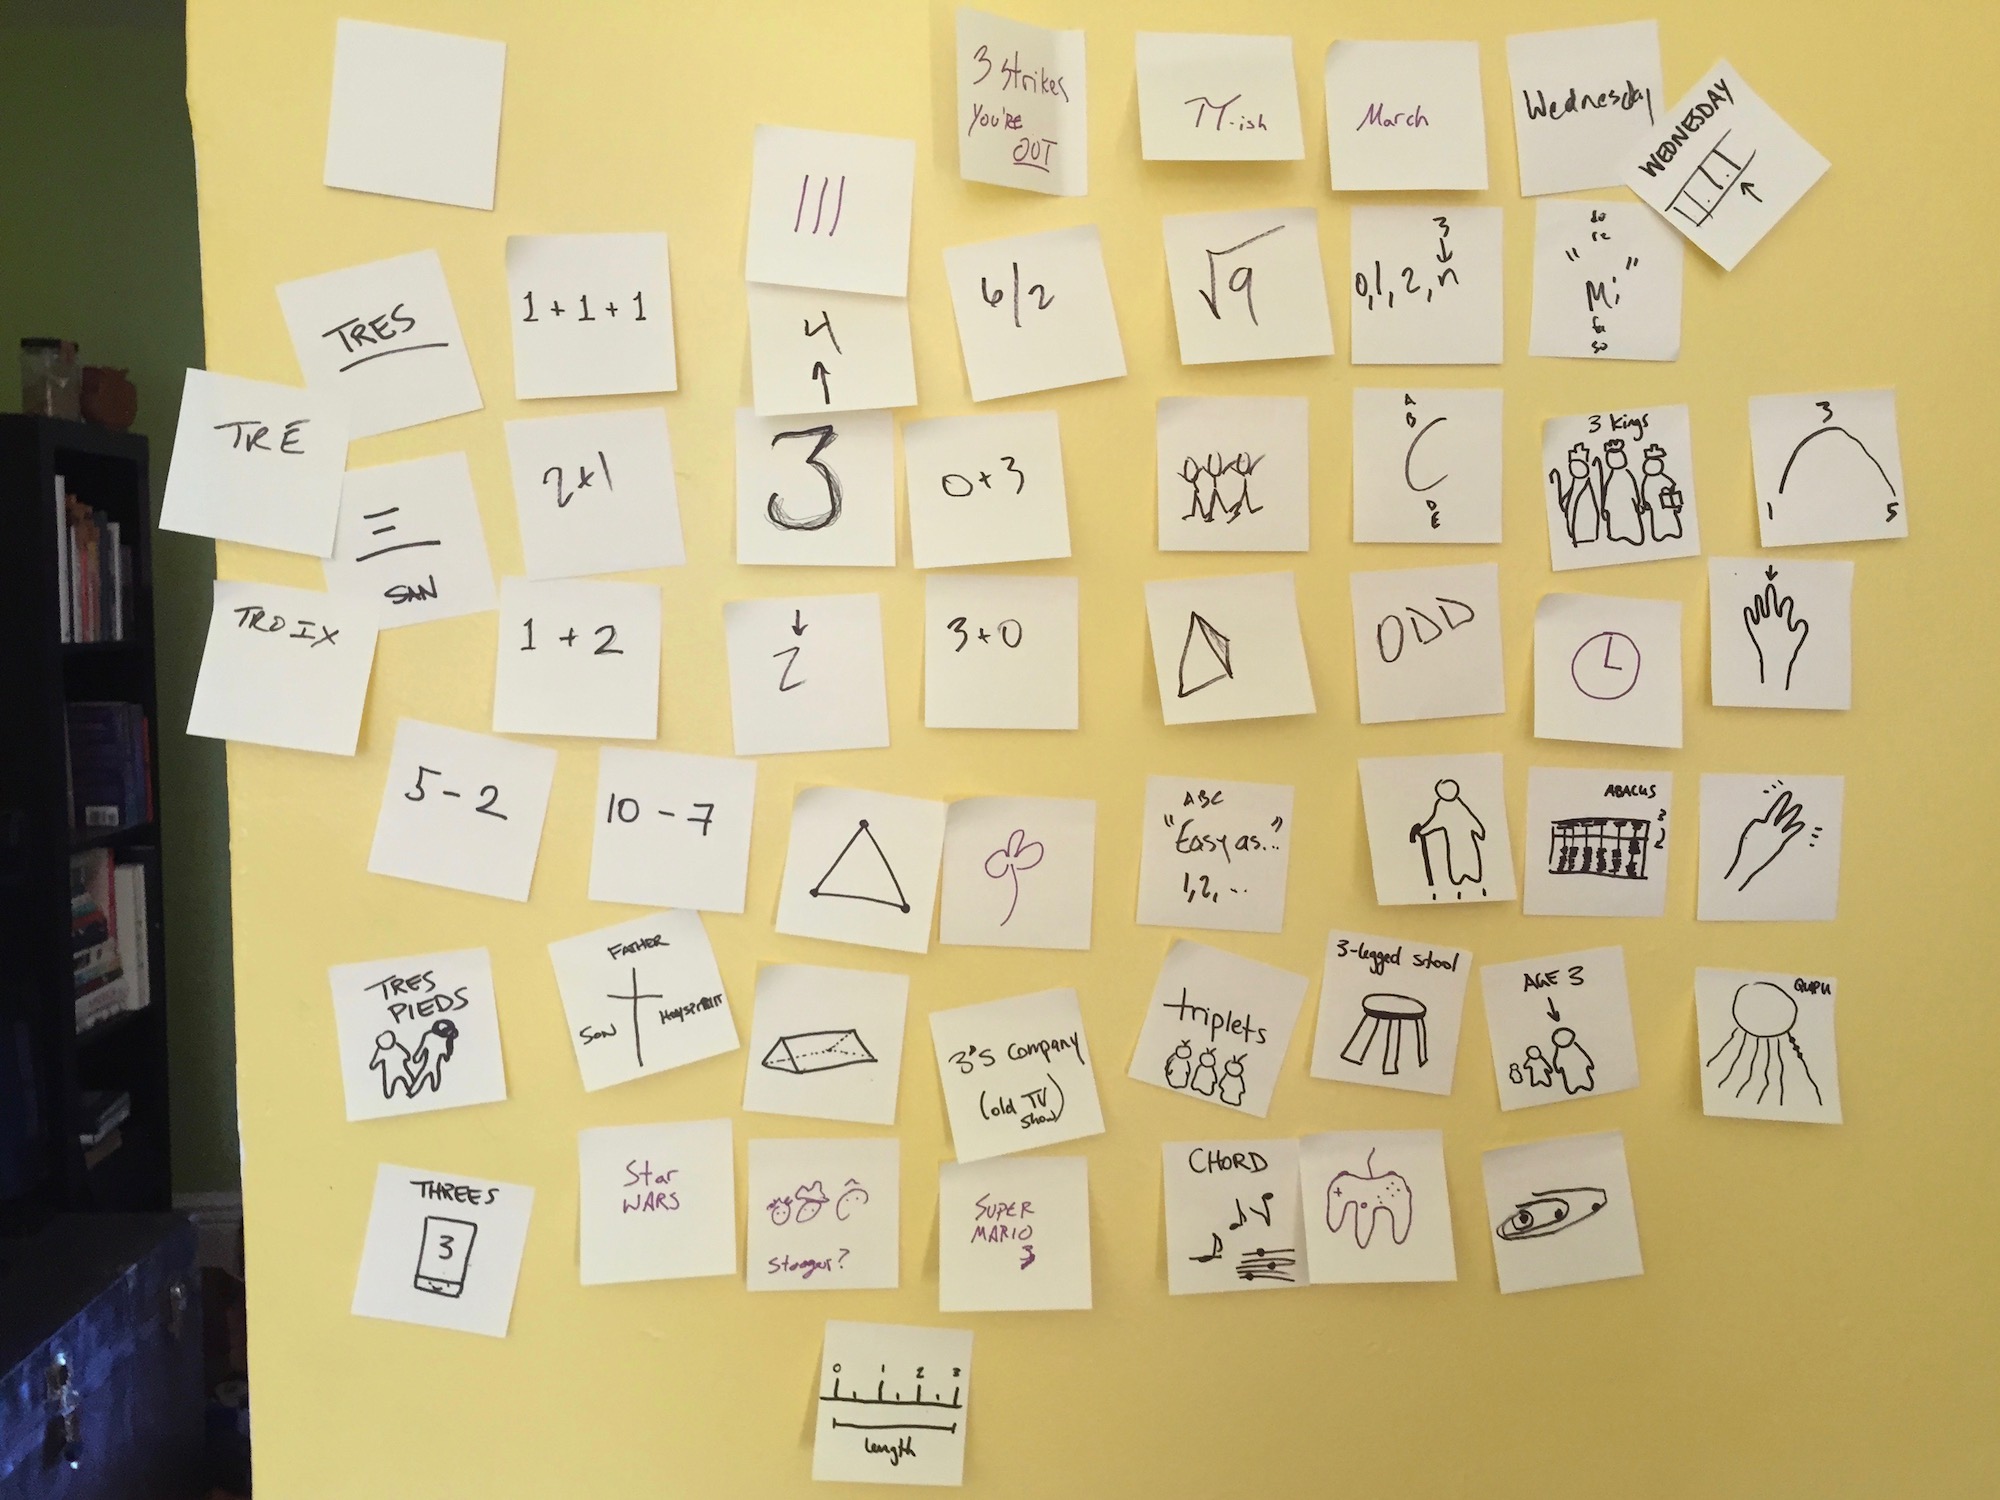 3 Strikes
You're
OUT
π-ish
March
Wednesday
WEDNESDAY
|||
TRES
1 + 1 + 1
4
6/2
√9
3
0, 1, 2, n
do
re
"Mi"
fa
so
TRE
三
SAN
2+1
3
0+3
A
B
C
D
E
3 kings
3
1
5
TROIX
1 + 2
2
3+0
ODD
5 - 2
10 - 7
ABC
"Easy as..."
1, 2, ...
ABACUS
3
2
TRES
PIEDS
FATHER
SON
HOLY SPIRIT
3's Company
(old TV
show)
triplets
3-legged stool
AGE 3
QUIPU
THREES
3
Star
WARS
Stooges?
SUPER
MARIO
3
CHORD
0 1 2 3
length